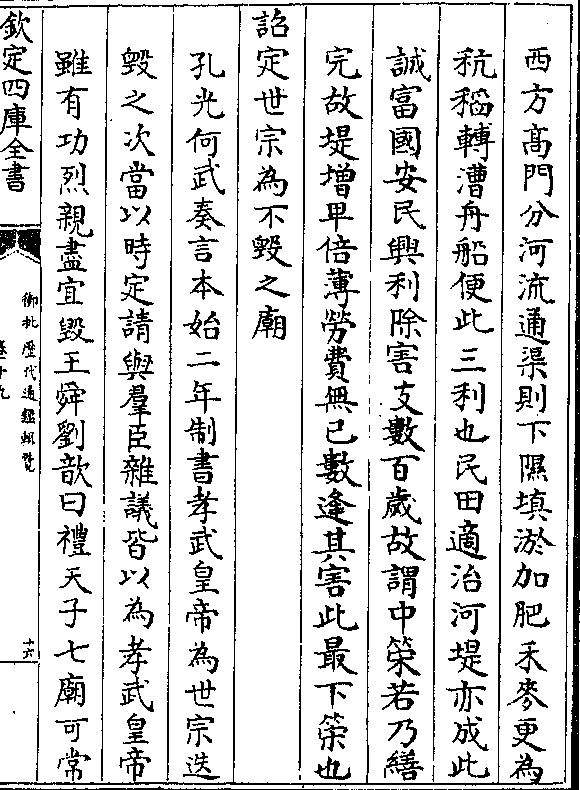 西方髙門分河流通渠則下隰填淤加肥禾麥更為
秔稻轉漕舟船便此三利也民田適治河堤亦成此
誠富國安民興利除害支數百歲故謂中策若乃繕
完故堤增卑倍薄勞費無已數逢其害此最下策也
詔定世宗為不毀之廟
孔光何武奏言本始二年制書孝武皇帝為世宗迭
毀之次當以時定請與羣臣雜議皆以為孝武皇帝
雖有功烈親盡宜毀王舜劉歆曰禮天子七廟可常
欽定四庫全書
御批歷代通鑑輯覽
卷十九
十六